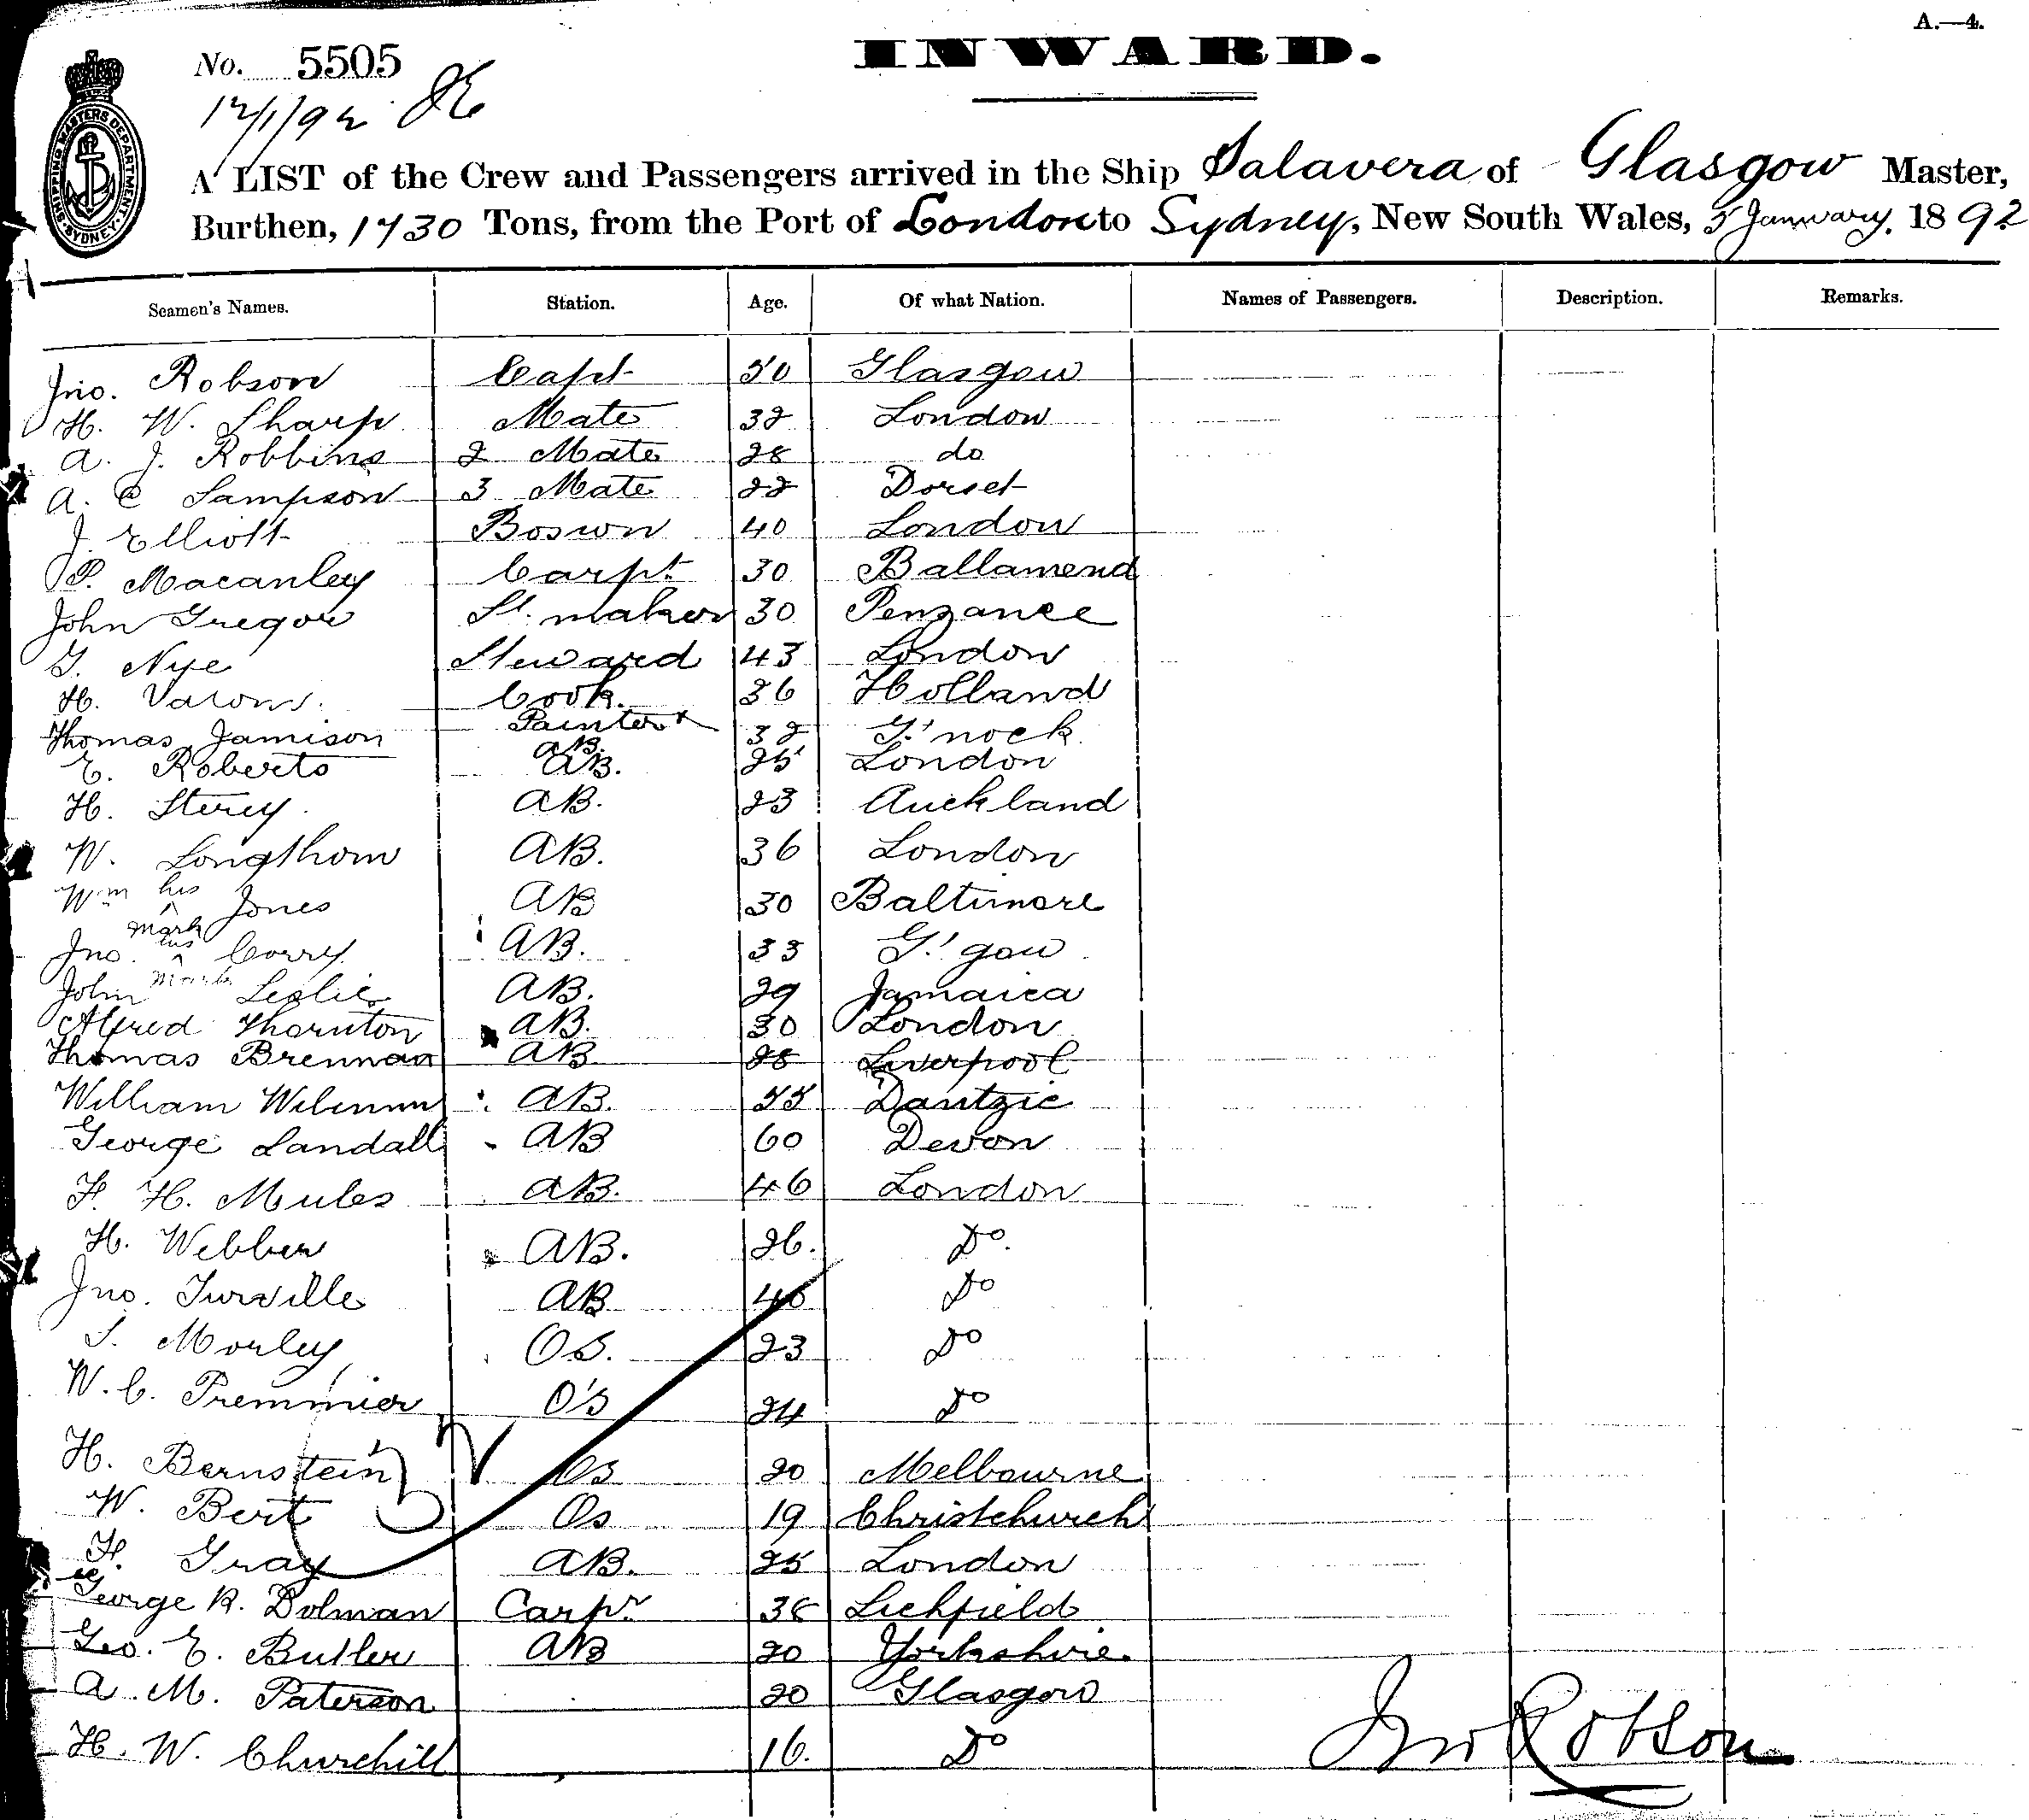 A.—4.
INWARD.
No. 5505
12/1/92
SHIPPING MASTERS DEPARTMENT SYDNEY
A LIST of the Crew and Passengers arrived in the Ship Salavera of Glasgow Master,
Burthen, 1730 Tons, from the Port of London to Sydney, New South Wales, 5 January. 1892
Seamen's Names. Station. Age. Of what Nation. Names of Passengers. Description. Remarks.
Jno. Robson Capt 50 Glasgow
H. W. Sharp Mate 32 London
A. J. Robbins 2 Mate 28 do
A. C Sampson 3 Mate 22 Dorset
J. Elliott Boswn 40 London
P. Macanley Carpt 30 Ballamend
John Gregor St. maker 30 Penzance
G. Nye Steward 43 London
H. Cook. 36 Holland
Thomas Jamison Painter x AB. 32 G'nock
E. Roberts AB. 25 London
H. Sterey. AB. 23 Auckland
W. Longthorn AB. 36 London
Wm his mark Jones AB 30 Baltimore
Jno. his mark Corry AB. 33 G'gow
John Leslie AB. 29 Jamaica
Alfred Thornton AB. 30 London
Thomas Brennan AB 28 Liverpool
William AB. 55 Dantzic
George Landall AB 60 Devon
F. H. Mules AB. 46 London
H. Webber AB. 26. Do.
Jno. Turville AB Do
S. Morley OS. 23 Do
W. C. Premmier O'S 24 Do
H. Bernstein OS 20 Melbourne
W. Bert Os 19 Christchurch
F. Gray AB. 25 London
George R. Dolman Carpr 36 Lichfield
Geo. E. Butler AB 20 Yorkshire.
A. M. Paterson 20 Glasgow
H. W. Churchill 16. Do
Jno Robson